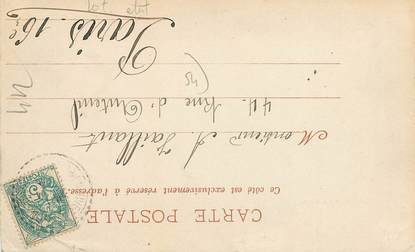 CARTE POSTALE
Ce côté est exclusivement réservé à l'adresse.
Monsieur A. Vaillant
44. Rue d'Auteuil
Paris. 16e